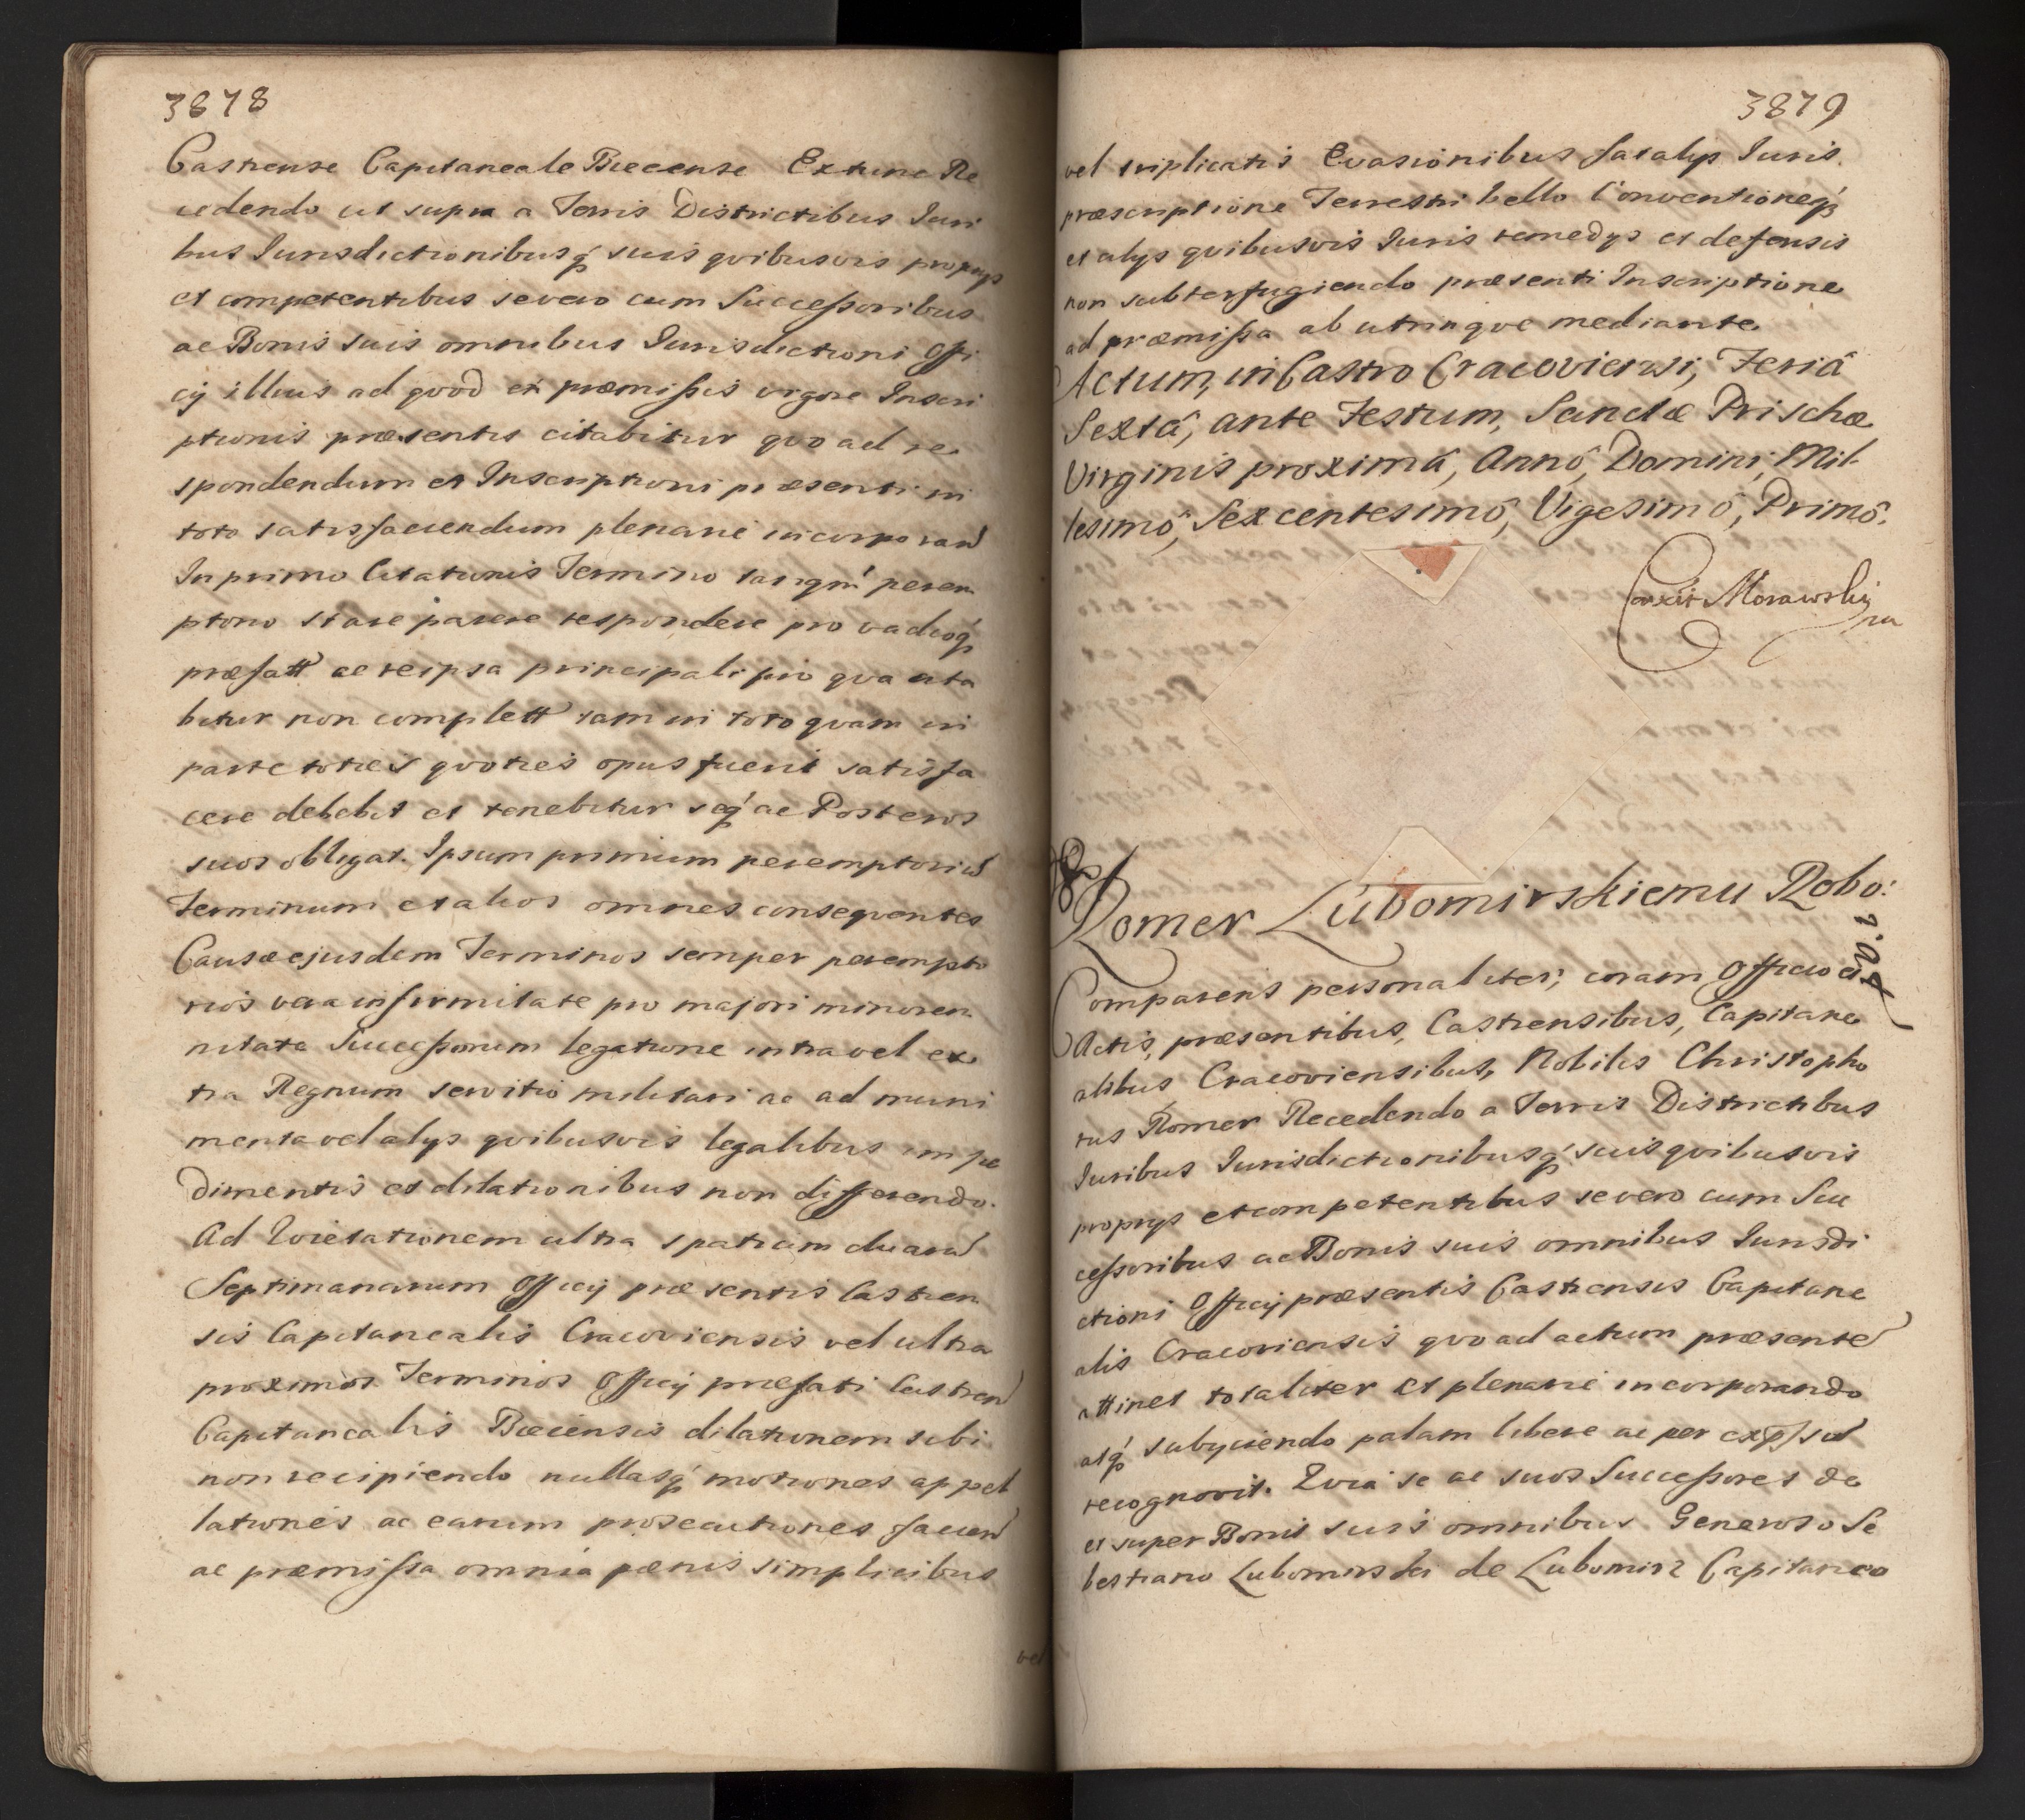 3878
Castrense Capitaneale Biecense Extunc Re
cedendo ut supra a Terris Districtibus Juri
bus Jurisdictionibusq́ suis qvibusvis proprys
et competentibus severo cum Successoribus
ac Bonis suis omnibus Jurisdictioni Offi
cij illius ad qvod ex præmissis vigore Inscri
ptionis præsentis citabitur qvo ad re
spondendum et Inscriptioni præsenti in
toto satisfaciendum plenarie incorporand
In primo Citationis Termino tanqm̃ perem
ptorio stare parere respondere pro vadioq́
præfatt ac reipsa principali pro qva cita
bitur non complett tam in toto qvam in
parte toties qvoties opus fuerit satisfa
cere debebit et tenebitur seq́ ac Posteros
suos obligat. Ipsum primum peremptoriu
Terminum et alios omnes conseqventes
Causæ ejusdem Terminos semper perempto
rios vera infirmitate pro majori minoren
nitate Successorum legatione intra vel ex
tra Regnum servitio militari ac ad muni
menta vel alys qvibusvis legalibus impe
dimentis et dilationibus non differendo.
Ad Evictationem ultra spatium duaru
Septimanarum Officij præsentis Castren
sis Capitanealis Cracoviensis vel ultra
proximos Terminos Officij præfati Castren
Capitanealis Biecensis dilationem sibi
non recipiendo nullasq́ motiones appel
lationes ac earum prosecutiones facien
ac præmissa omnia pænis simplicibus
vel
3879
vel triplicatis Evasionibus fatalys Juris.
præscriptione Terrestri bello Conventioneq́
et alys qvibusvis Juris remedys et defensis
non subterfugiendo præsenti Inscriptione
ad præmissa ab utrinqve mediante
Actum, in Castro Cracoviensi, Feriâ
Sextâ, ante Festum, Sanctæ Prischæ
Virginis proximâ, Annô, Domini, Mil-
lesimô, Sexcentesimô, Vigesimô, Primô.
Correxit Morawski
mp
Romer Lubomirskiemu Robo:
Comparens personaliter, coram Officio et
Actis, præsentibus, Castrensibus, Capitane
alibus Cracoviensibus, Nobilis Christopho
rus Romer Recedendo a Terris Districtibus
Juribus Jurisdictionibusq́ suis qvibusvis
proprys et competentibus severo cum Suc
cessoribus ac Bonis suis omnibus Jurisdi
ctioni Officij præsentis Castrensis Capitane
alis Cracoviensis qvo ad actum præsente
attinet totaliter et plenarie incorporando
atq́ subyciendo palam libere ac per expssu
recognovit. Qvia se ac suos Successores de
et super Bonis suis omnibus Generoso Se
bestiano Lubomirski de Lubomirz Capitaneo